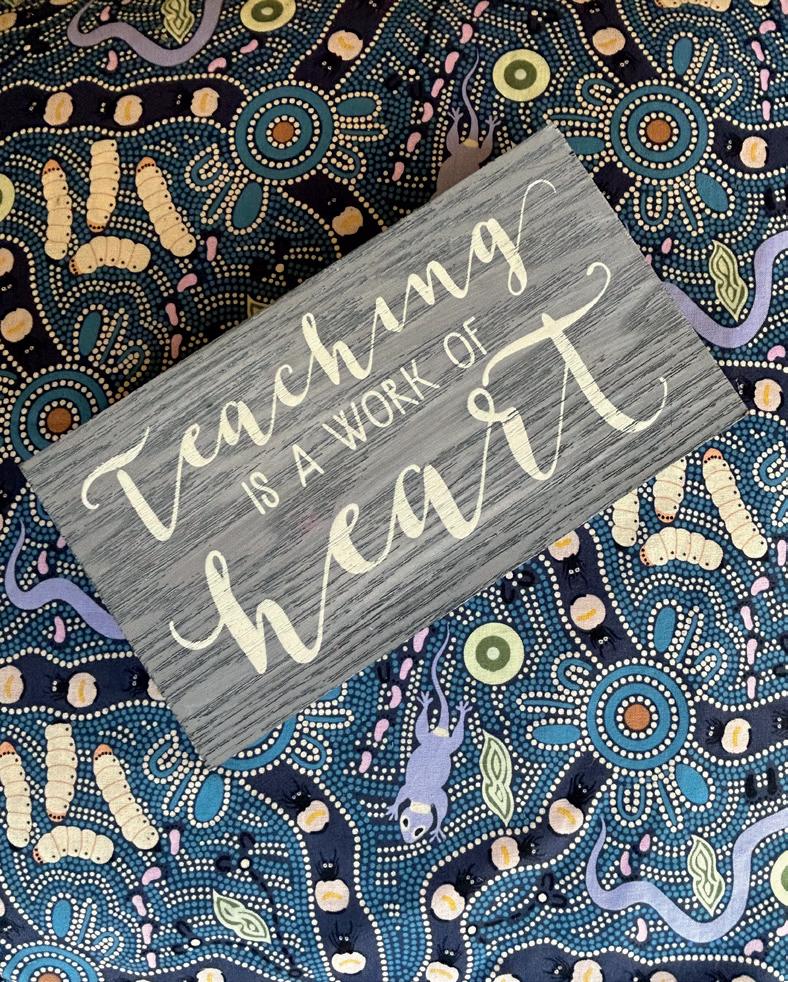 Teaching
IS A WORK OF
heart